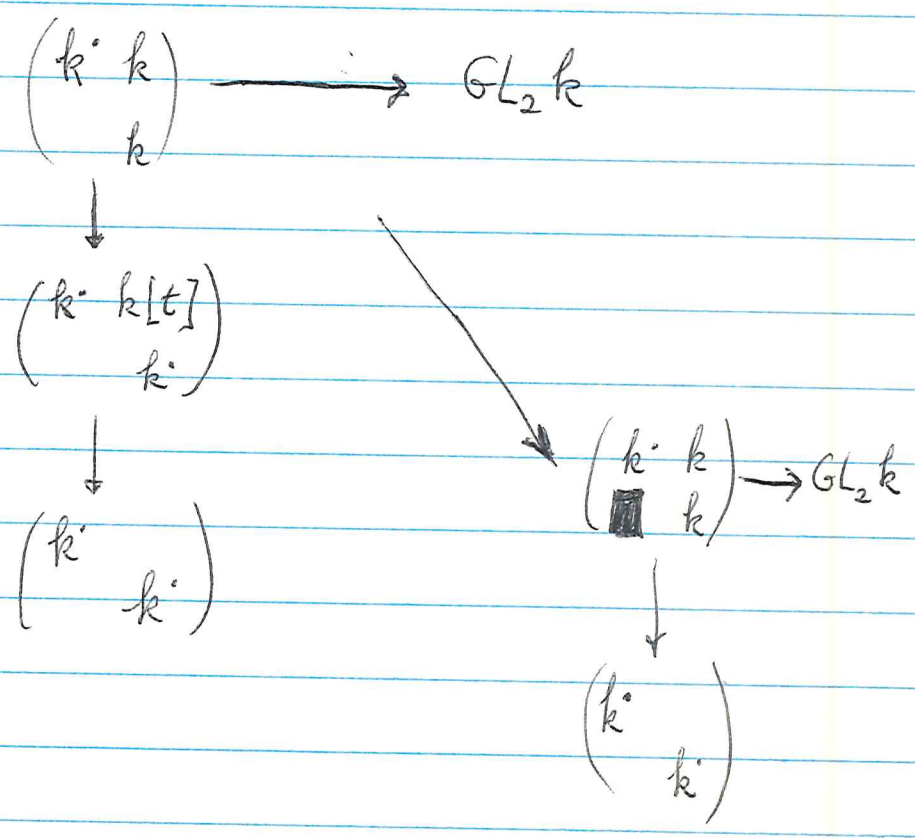 ( k· k ) ⟶ GL₂ k
( k )
↓
( k· k[t] )
( k· )
↓
( k· )
( k· )
( k· k ) ⟶ GL₂ k
( k )
↓
( k· )
( k· )